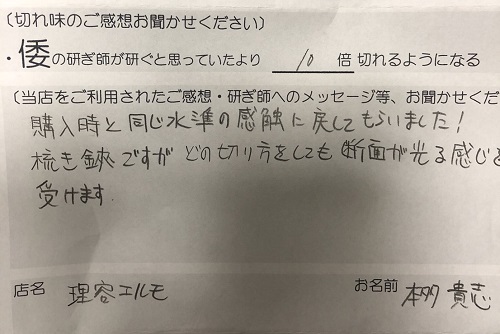 (切れ味のご感想お聞かせください)
・倭の研ぎ師が研ぐと思っていたより 10 倍切れるようになる
(当店をご利用されたご感想・研ぎ師へのメッセージ等、お聞かせくだ
購入時と同じ水準の感触に戻してもらいました!
梳き鋏ですが どの切り方をしても断面が光る感じを
受けます.
店名 理容エルモ お名前 本多 貴志